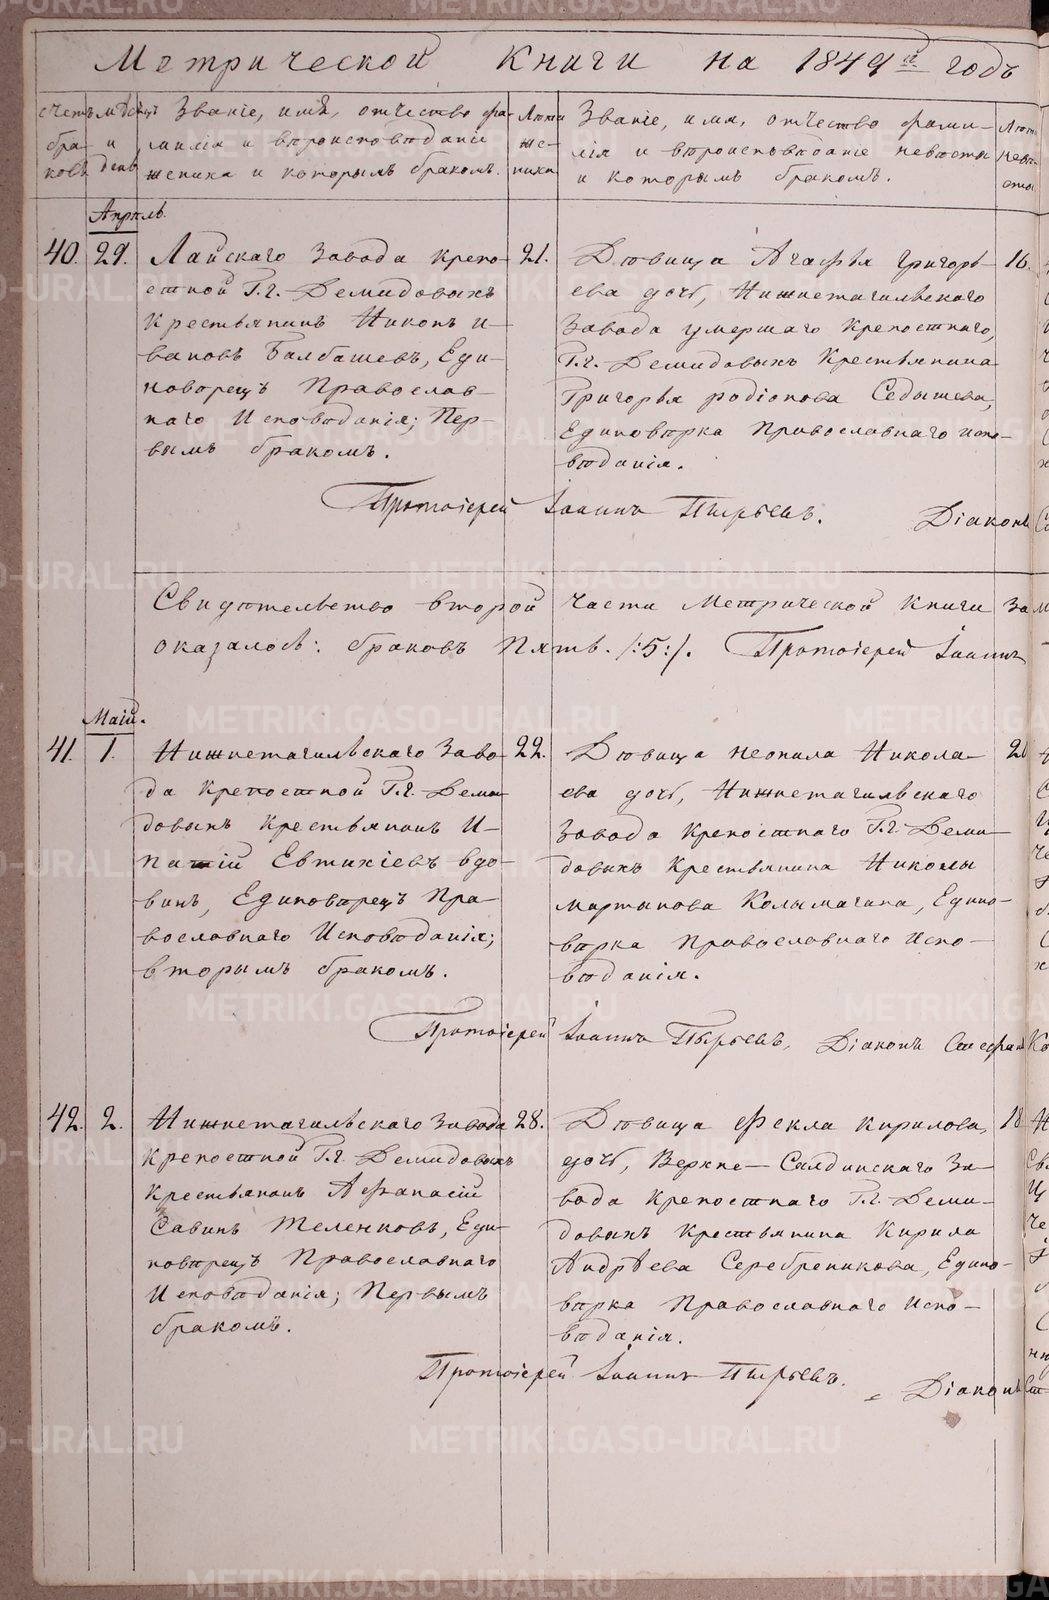 Метрической Книги на 1849й годъ
Счетъ браковъ
мѣсяцъ и день
Званіе, имя, отчество, фа-
милія и вѣроисповѣданіе
жениха и которымъ бракомъ.
Лѣта
же-
ниха
Званіе, имя, отчество фами-
лія и вѣроисповѣданіе невѣсты
и которымъ бракомъ.
Лѣта
невѣ-
сты
Апрѣль.
40. 29.
Лайскаго завода крепо-
стной Г.г. Демидовыхъ
Крестьянинъ Никонъ И-
вановъ Балбашевъ, Еди-
новерецъ Православ-
наго Исповѣданія; Пер-
вымъ бракомъ.
21.
Дѣвица Агафья Григорь-
ева дочь, Нижнетагильскаго
завода умершаго Крепостнаго,
Г.г. Демидовыхъ Крестьянина
Григорья родіонова Седышева,
Единовѣрка Православнаго испо-
вѣданія.
16.
Протоіерей Іоаннъ Пырьевъ. Діаконъ
Свидѣтельство второй части Метрической Книги за
оказалось: браковъ Пять. /:5:/. Протоіерей Іоаннъ
Маій.
41. 1.
Нижнетагильскаго Заво-
да Крепостной Г.г. Деми-
довыхъ Крестьянинъ И-
патій Евтихіевъ вдо-
винъ, Единовѣрецъ Пра-
вославнаго Исповѣданія;
вторымъ бракомъ.
22.
Дѣвица Неонила Никола-
ева дочь, Нижнетагильскаго
завода Крепостнаго Г.г. Деми-
довыхъ Крестьянина Николы
мартинова Колымагина, Едино-
вѣрка Православнаго испо-
вѣданія.
Протоіерей Іоаннъ Пырьевъ, Діаконъ Стефанъ
42. 2.
Нижнетагильскаго Завода
Крепостной Г.г. Демидовыхъ
Крестьянинъ Афанасій
Савинъ Теленковъ, Еди-
новѣрецъ Православнаго
Исповѣданія; Первымъ
бракомъ.
28.
Дѣвица Фекла Кирилова,
дочь, Верхне-Салдинскаго За-
вода Крепостнаго Г.г. Деми-
довыхъ Крестьянина Кирила
Андрѣева Серебреникова, Едино-
вѣрка Православнаго испо-
вѣданія.
18
Протоіерей Іоаннъ Пырьевъ. Діаконъ
METRIKI.GASO-URAL.RU